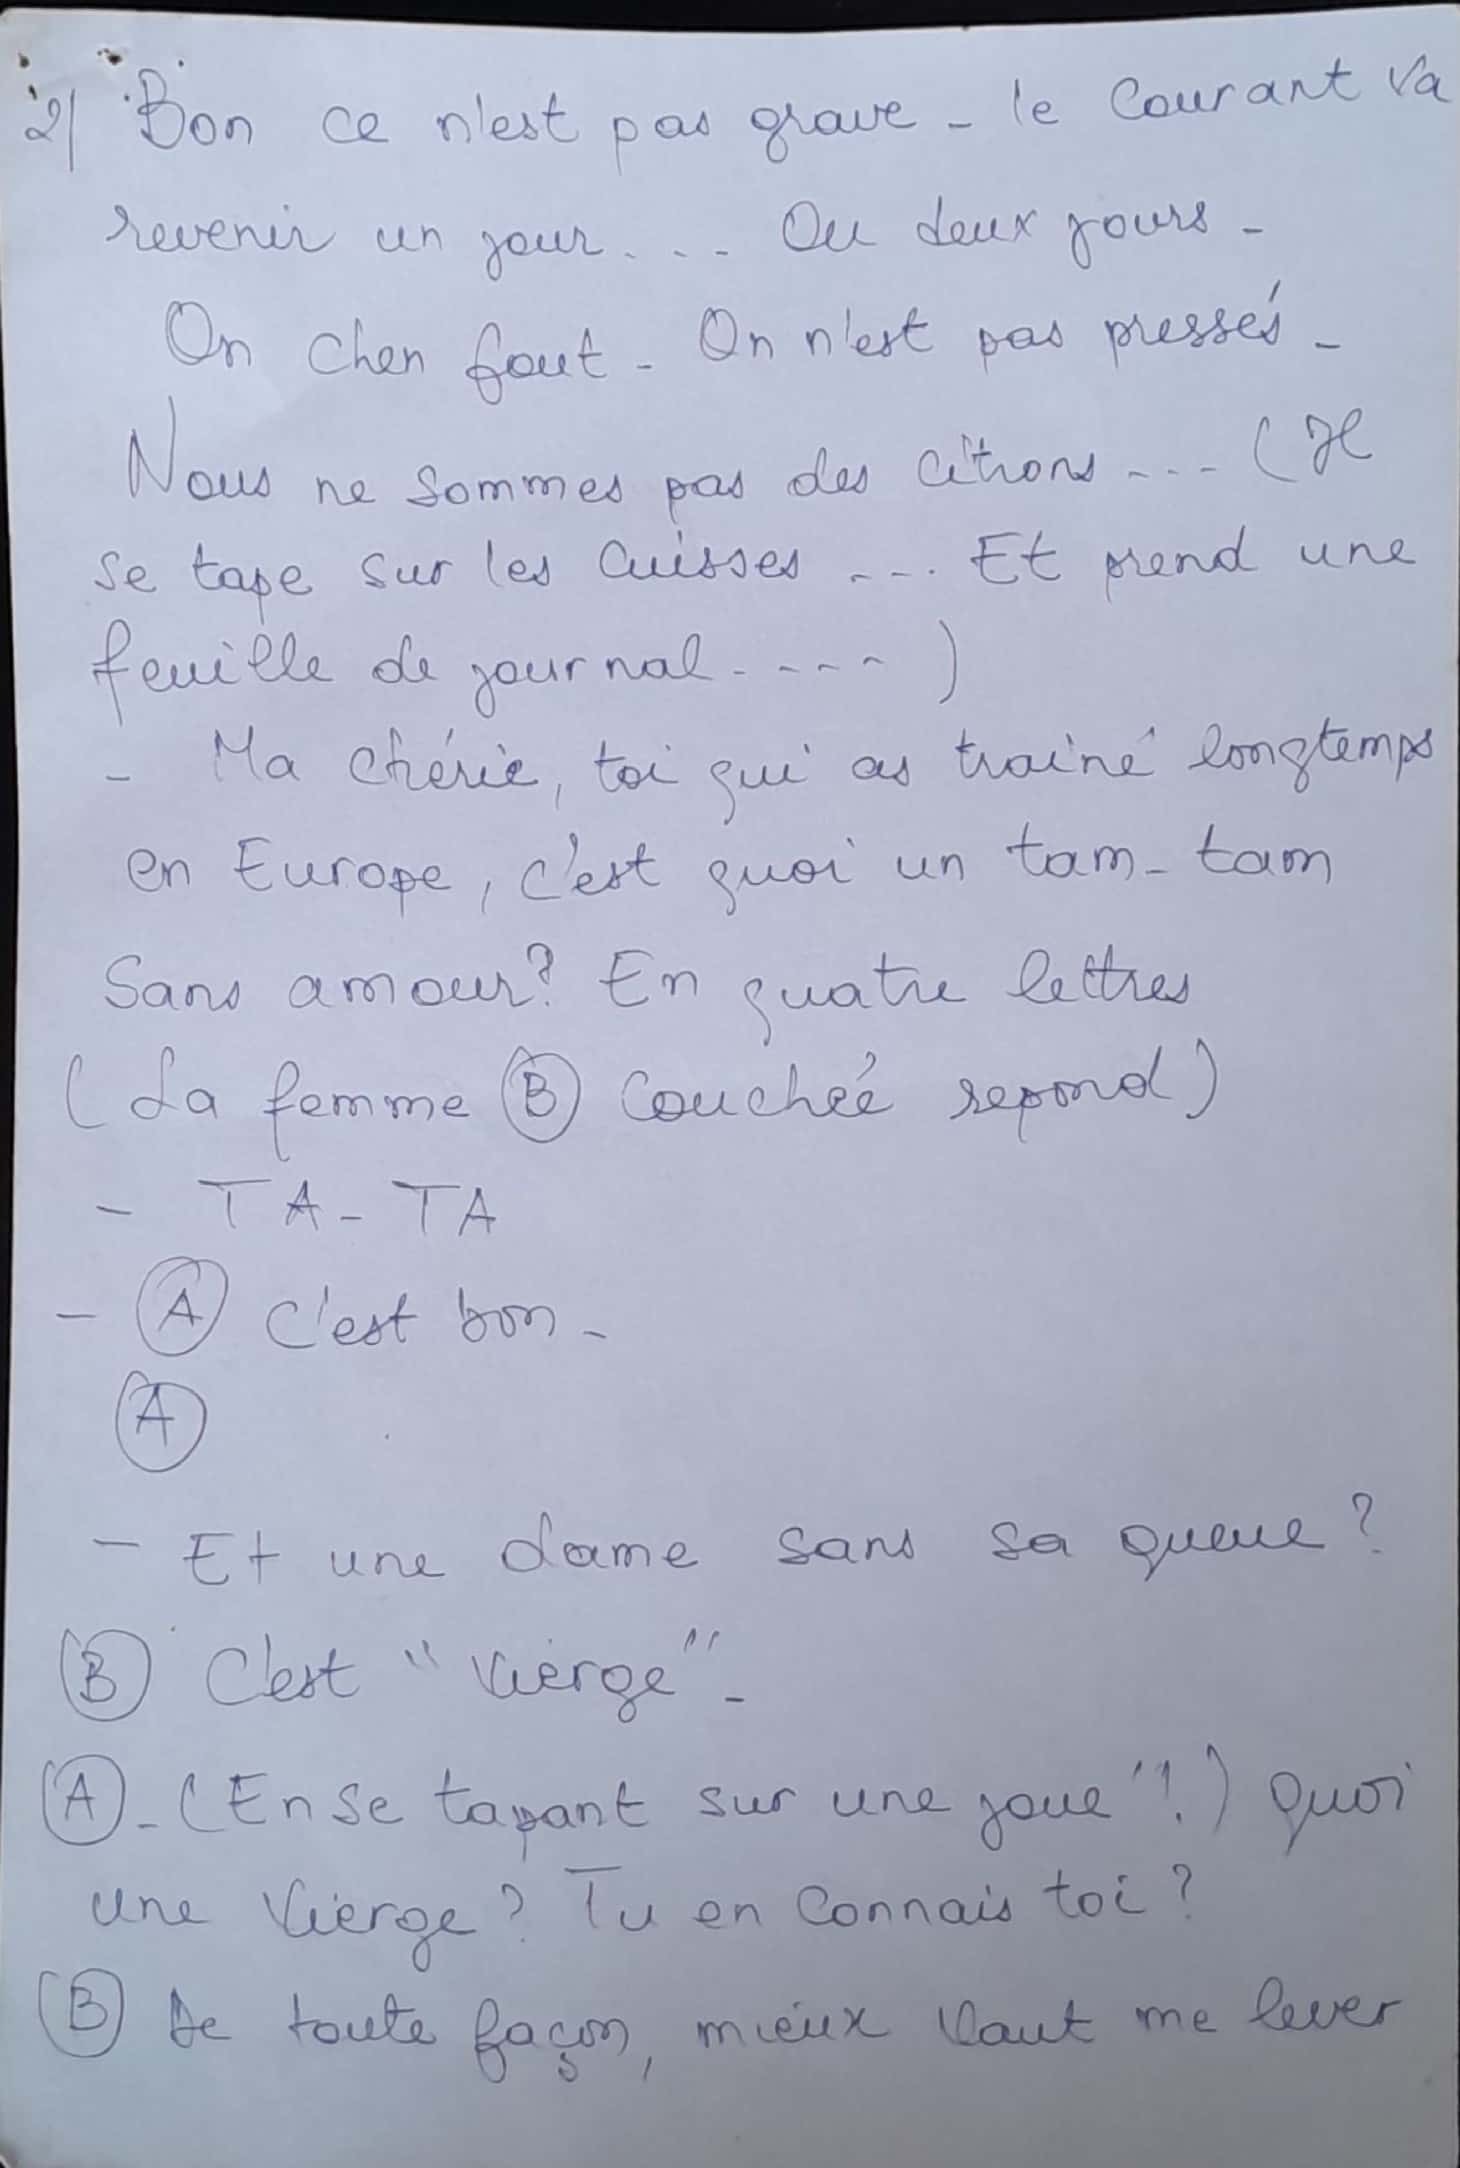 2/ Bon ce n'est pas grave - le courant va
revenir un jour... Ou deux jours -
On chen fout - On n'est pas pressés -
Nous ne sommes pas des citrons --- (Il
se tape sur les cuisses ---. Et prend une
feuille de journal. ----)
- Ma chérie, toi qui as trainé longtemps
en Europe, c'est quoi un tam-tam
sans amour? En quatre lettres
(La femme (B) couchéé repond)
- TA-TA
- (A) c'est bon -
(A)
- Et une dame sans sa queue ?
(B) C'est "Vierge" -
(A) - (En se tapant sur une joue "!) Quoi
une Vierge ? Tu en connais toi ?
(B) De toute façon, mieux vaut me lever